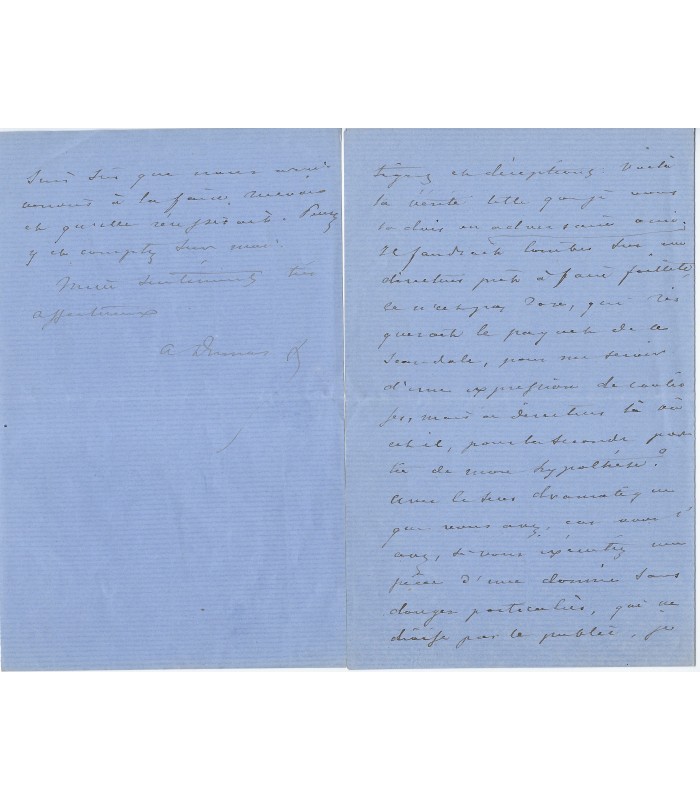 suis sûr que nous arri-
verions à la faire recevoir
et qu'elle réussirait.
y et comptez sur moi.
Mille sentiments très
affectueux
A Dumas f
tigues et déceptions. Voilà
la vérité telle que je vous
la dois en adversaire ami.
Il faudrait tomber sur un
directeur prêt à faire faillite
ce n'est pas rare, qui ris
querait le paquet de ce
scandale, pour me servir
d'une expression de coulis
ses, mais ce directeur là où
est-il, pour la seconde par
tie de mon hypothèse?
Avec le sens dramatique
que vous avez, car vous l'
avez, si vous exécutez une
pièce d'une donnée sans
danger particulier, qui ne
divise pas le public, je